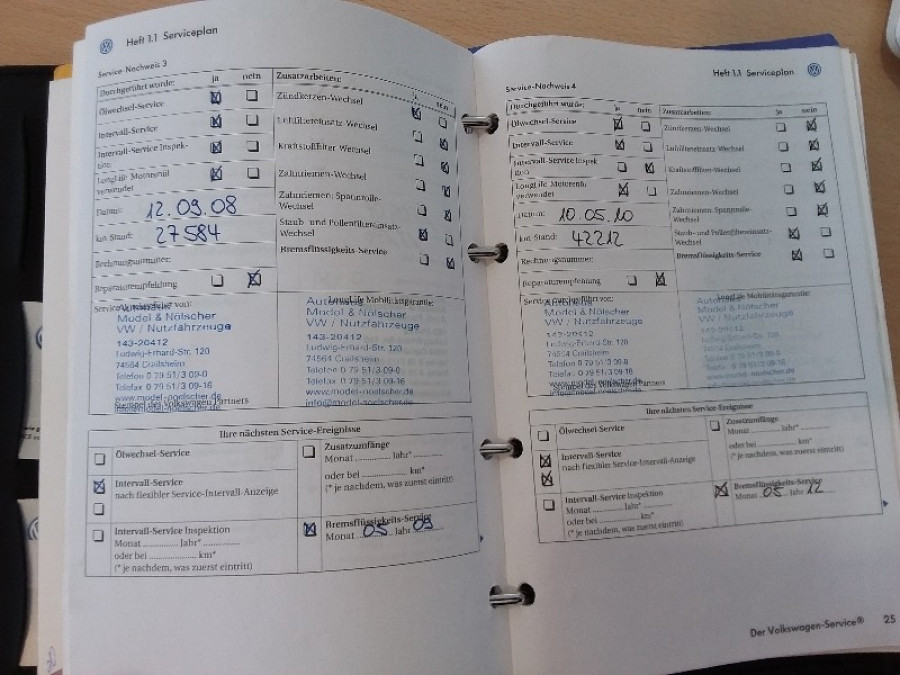 Heft 1.1 Serviceplan
Service-Nachweis 3
Durchgeführt wurde: ja nein
Ölwechsel-Service
Intervall-Service
Intervall-Service Inspek-
tion
LongLife Motorenöl
verwendet
Datum: 12.09.08
km-Stand: 27584
Rechnungsnummer:
Reparaturempfehlung
Zusatzarbeiten: ja nein
Zündkerzen-Wechsel
Luftfiltereinsatz-Wechsel
Kraftstofffilter Wechsel
Zahnriemen-Wechsel
Zahnriemen: Spannrolle-
Wechsel
Staub- und Pollenfiltereinsatz-
Wechsel
Bremsflüssigkeits-Service
Service durchgeführt von:
Model & Nölscher
VW / Nutzfahrzeuge
143-20412
Ludwig-Erhard-Str. 120
74564 Crailsheim
Telefon 0 79 51/3 09-0
Telefax 0 79 51/3 09-16
www.model-noelscher.de
Stempel des Volkswagen Partners
LongLife Mobilitätsgarantie:
Model & Nölscher
VW / Nutzfahrzeuge
143-20412
Ludwig-Erhard-Str. 120
74564 Crailsheim
Telefon 0 79 51/3 09-0
Telefax 0 79 51/3 09-16
www.model-noelscher.de
info@model-noelscher.de
Ihre nächsten Service-Ereignisse
Ölwechsel-Service
Intervall-Service
nach flexibler Service-Intervall-Anzeige
Intervall-Service Inspektion
Monat ............ Jahr* ............
oder bei ............ km*
(* je nachdem, was zuerst eintritt)
Zusatzumfänge
Monat ............ Jahr* ............
oder bei ............ km*
(* je nachdem, was zuerst eintritt)
Bremsflüssigkeits-Service
Monat 05 Jahr 09
Heft 1.1 Serviceplan
Service-Nachweis 4
Durchgeführt wurde: ja nein
Ölwechsel-Service
Intervall-Service
Intervall-Service Inspek
tion
LongLife Motorenöl
verwendet
Datum: 10.05.10
km-Stand: 42212
Rechnungsnummer:
Reparaturempfehlung
Zusatzarbeiten: ja nein
Zündkerzen-Wechsel
Luftfiltereinsatz-Wechsel
Kraftstofffilter-Wechsel
Zahnriemen-Wechsel
Zahnriemen: Spannrolle-
Wechsel
Staub- und Pollenfiltereinsatz-
Wechsel
Bremsflüssigkeits-Service
Service durchgeführt von:
Model & Nölscher
VW / Nutzfahrzeuge
143-20412
Ludwig-Erhard-Str. 120
74564 Crailsheim
Telefon 0 79 51/3 09-0
Telefax 0 79 51/3 09-16
www.model-noelscher.de
Stempel des Volkswagen Partners
LongLife Mobilitätsgarantie:
Model & Nölscher
VW / Nutzfahrzeuge
143-20412
Ludwig-Erhard-Str. 120
74564 Crailsheim
Telefon 0 79 51/3 09-0
Telefax 0 79 51/3 09-16
www.model-noelscher.de
Ihre nächsten Service-Ereignisse
Ölwechsel-Service
Intervall-Service
nach flexibler Service-Intervall-Anzeige
Intervall-Service Inspektion
Monat ............ Jahr* ............
oder bei ............ km*
(* je nachdem, was zuerst eintritt)
Zusatzumfänge
Monat ............ Jahr* ............
oder bei ............ km*
(* je nachdem, was zuerst eintritt)
Bremsflüssigkeits-Service
Monat 05 Jahr 12
Der Volkswagen-Service® 25